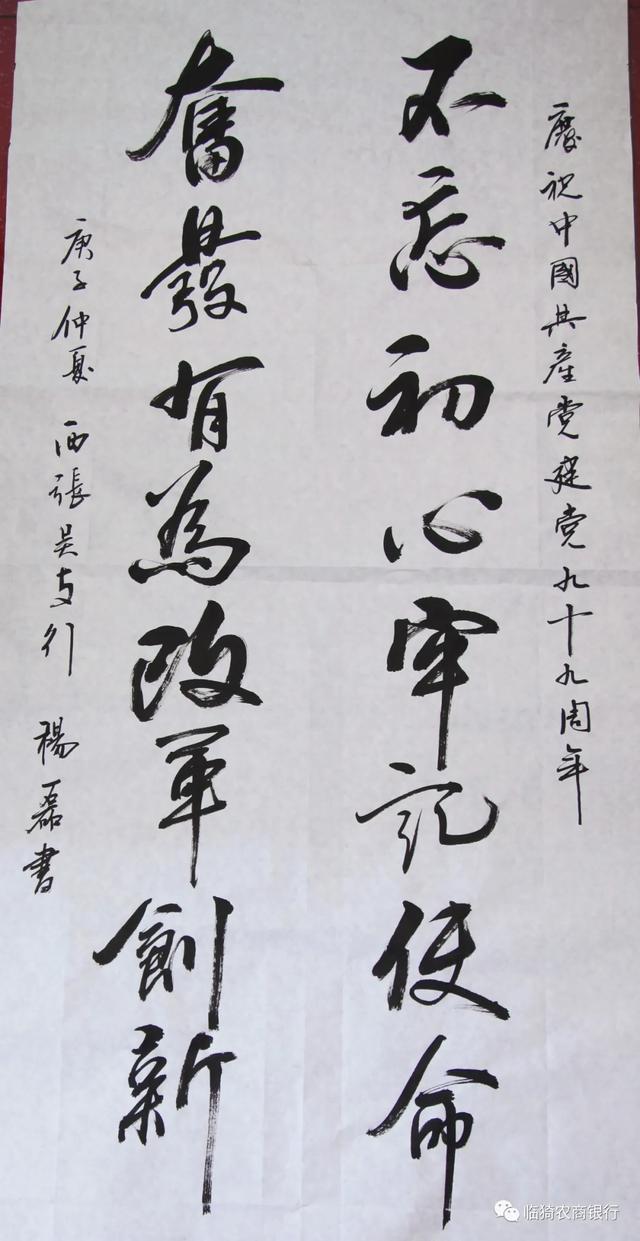 慶祝中國共產党建党九十九周年
不忘初心牢記使命
奮發有為改革創新
庚子仲夏 西張吴支行 楊磊書
临猗农商银行